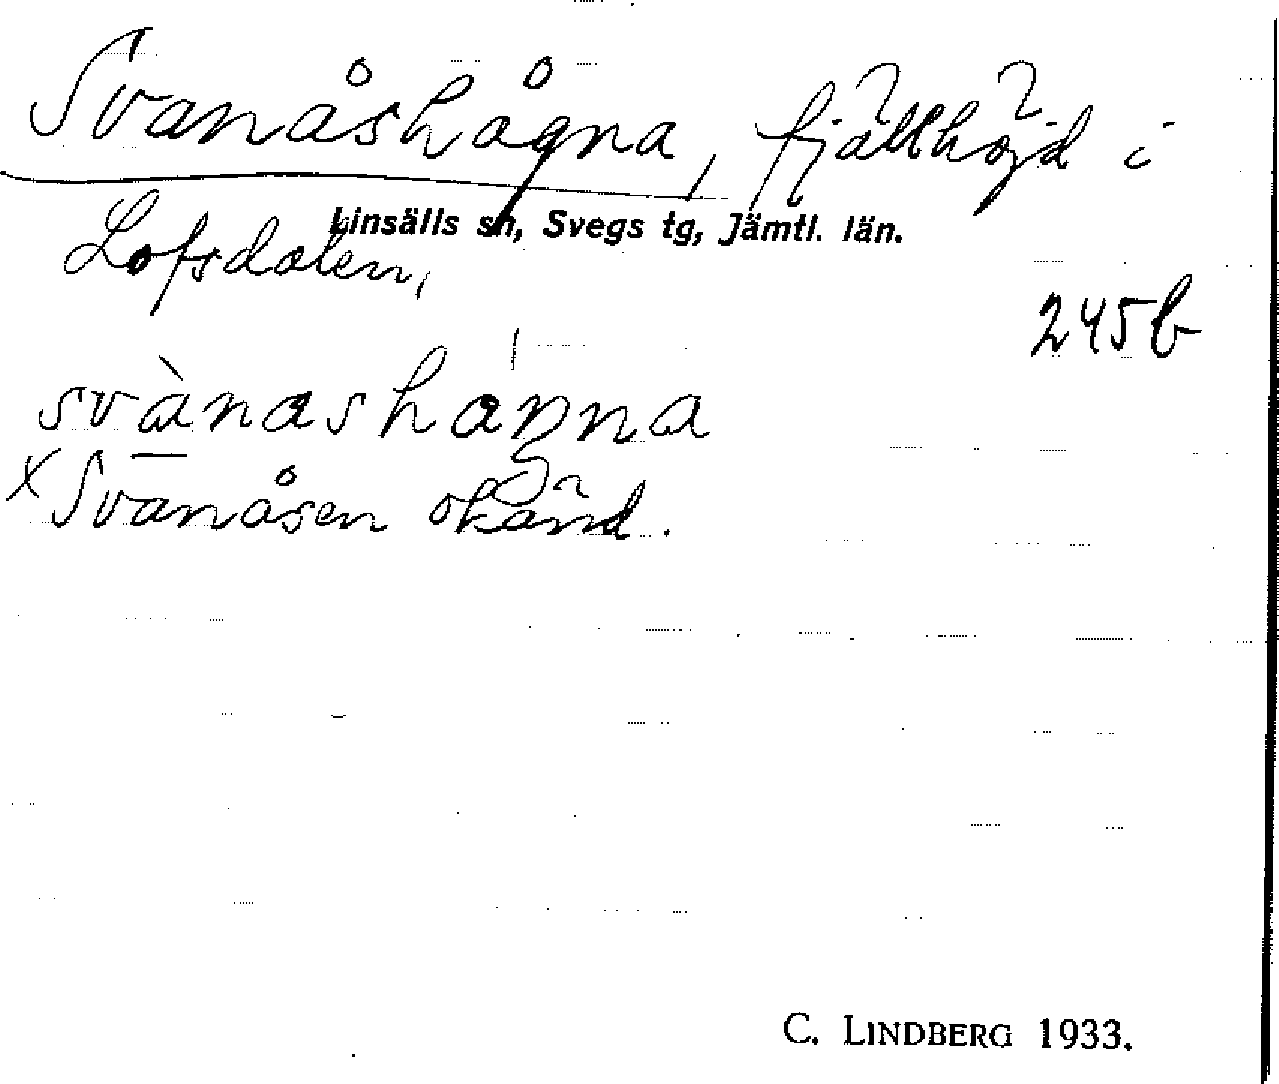 Svanåshågna, fjällhöjd i
Linsälls sn, Svegs tg, Jämtl. län.
Lofsdalen,
245b
svànashaŋna
×Svanåsen okänd.
C. LINDBERG 1933.